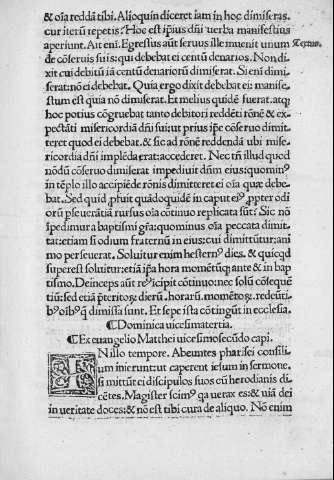 & oĩa reddã tibi. Alioquin diceret iam in hoc dimiseras.
cur iterũ repetis? Hoc est ip̃ius dñi uerba manifestius
aperiunt. Ait em̃. Egressus aũt seruus ille inuenit unum
Textus.
de cõseruis suis: qui debebat ei centũ denarios. Non di
xit cui debitũ iã centũ denariorũ dimiserat. Si em̃ dimi
serat: nõ ei debebat. Quia ergo dixit debebat ei: manife
stum est quia nõ dimiserat. Et melius quidẽ fuerat. atqꝫ
hoc potius cõgruebat tanto debitori reddẽti rõnẽ & ex
pectãti misericordiã dñi sui: ut prius ip̃e cõseruo dimit
teret quod ei debebat. & sic ad rõnẽ reddendã ubi mise
ricordia dñi implẽda erat: accederet. Nec tñ illud quod
nõdũ cõseruo dimiserat impediuit dñm eius: quominꝰ
in tẽplo illo accipiẽde rõnis dimitteret ei oĩa quæ debe
bat. Sed quid ꝓfuit quãdoquidẽ in caput eiꝰ. ꝓpter odi
orũ ꝑseuerãtiã rursus oĩa cõtinuo replicata sut? Sic nõ
ĩpedimur a baptismi grã: quominus oĩa peccata dimit
tat: etiam si odium fraternũ in eius: cui dimittũtur: ani
mo perseuerat. Soluitur enim hesternꝰ dies. & quicqd
superest soluitur: etiã ip̃a hora momẽtũqꝫ ante & in bap
tismo. Deinceps aũt reꝰ ĩcipit cõtinuo: nec solũ cõseque
tiũ: sed etiã p̃teritoꝝ: dierũ. horarũ. momẽtoꝝ. redeũti
bꝰ oĩbꝰ q̃ dimissa sunt. Et sepe ista cõtingũt in ecclesia.
¶ Dominica uicesimatertia.
¶ Ex euangelio Matthei uicesimosecũdo capi.
IN illo tempore. Abeuntes pharisei consili
um inierunt: ut caperent iesum in sermone.
si mittũt ei discipulos suos cũ herodianis di
cẽtes. Magister scimꝰ qa uerax es: & uiã dei
in ueritate doces: & nõ est tibi cura de aliquo. Nõ enim